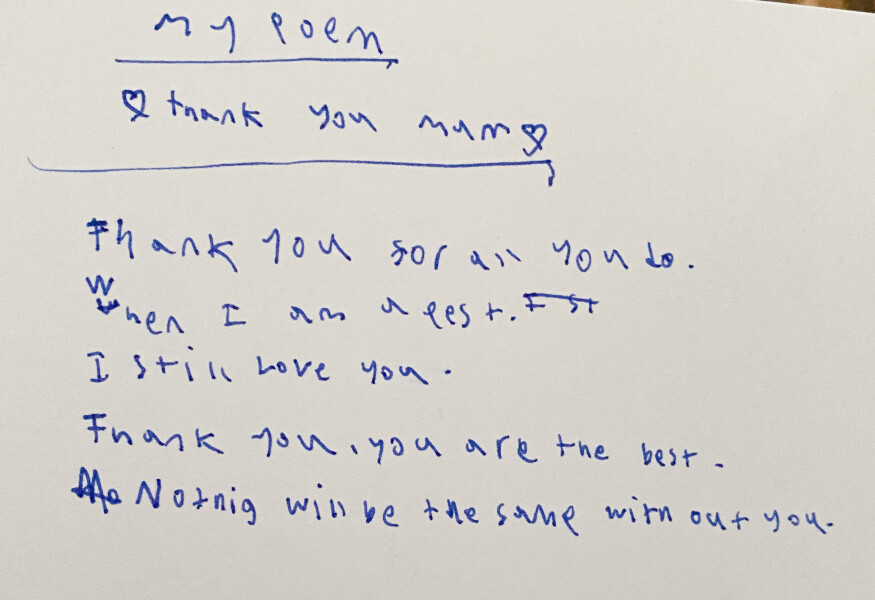 my poem
♡ thank you mum ♡
Thank you for all you do.
When I am a pest. I st
I still Love you.
Thank you, you are the best.
Notnig will be the same with out you.